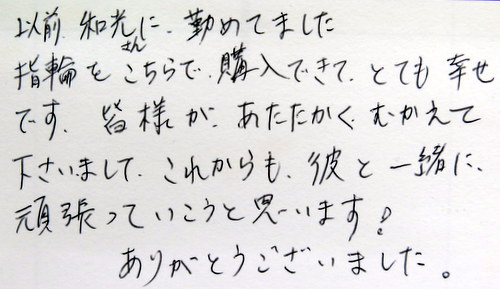 以前.和光さんに.勤めてました
指輪をこちらで.購入できて.とても幸せ
です.皆様が.あたたかく.むかえて
下さいまして.これからも.彼と一緒に.
頑張っていこうと思います!
ありがとうございました。